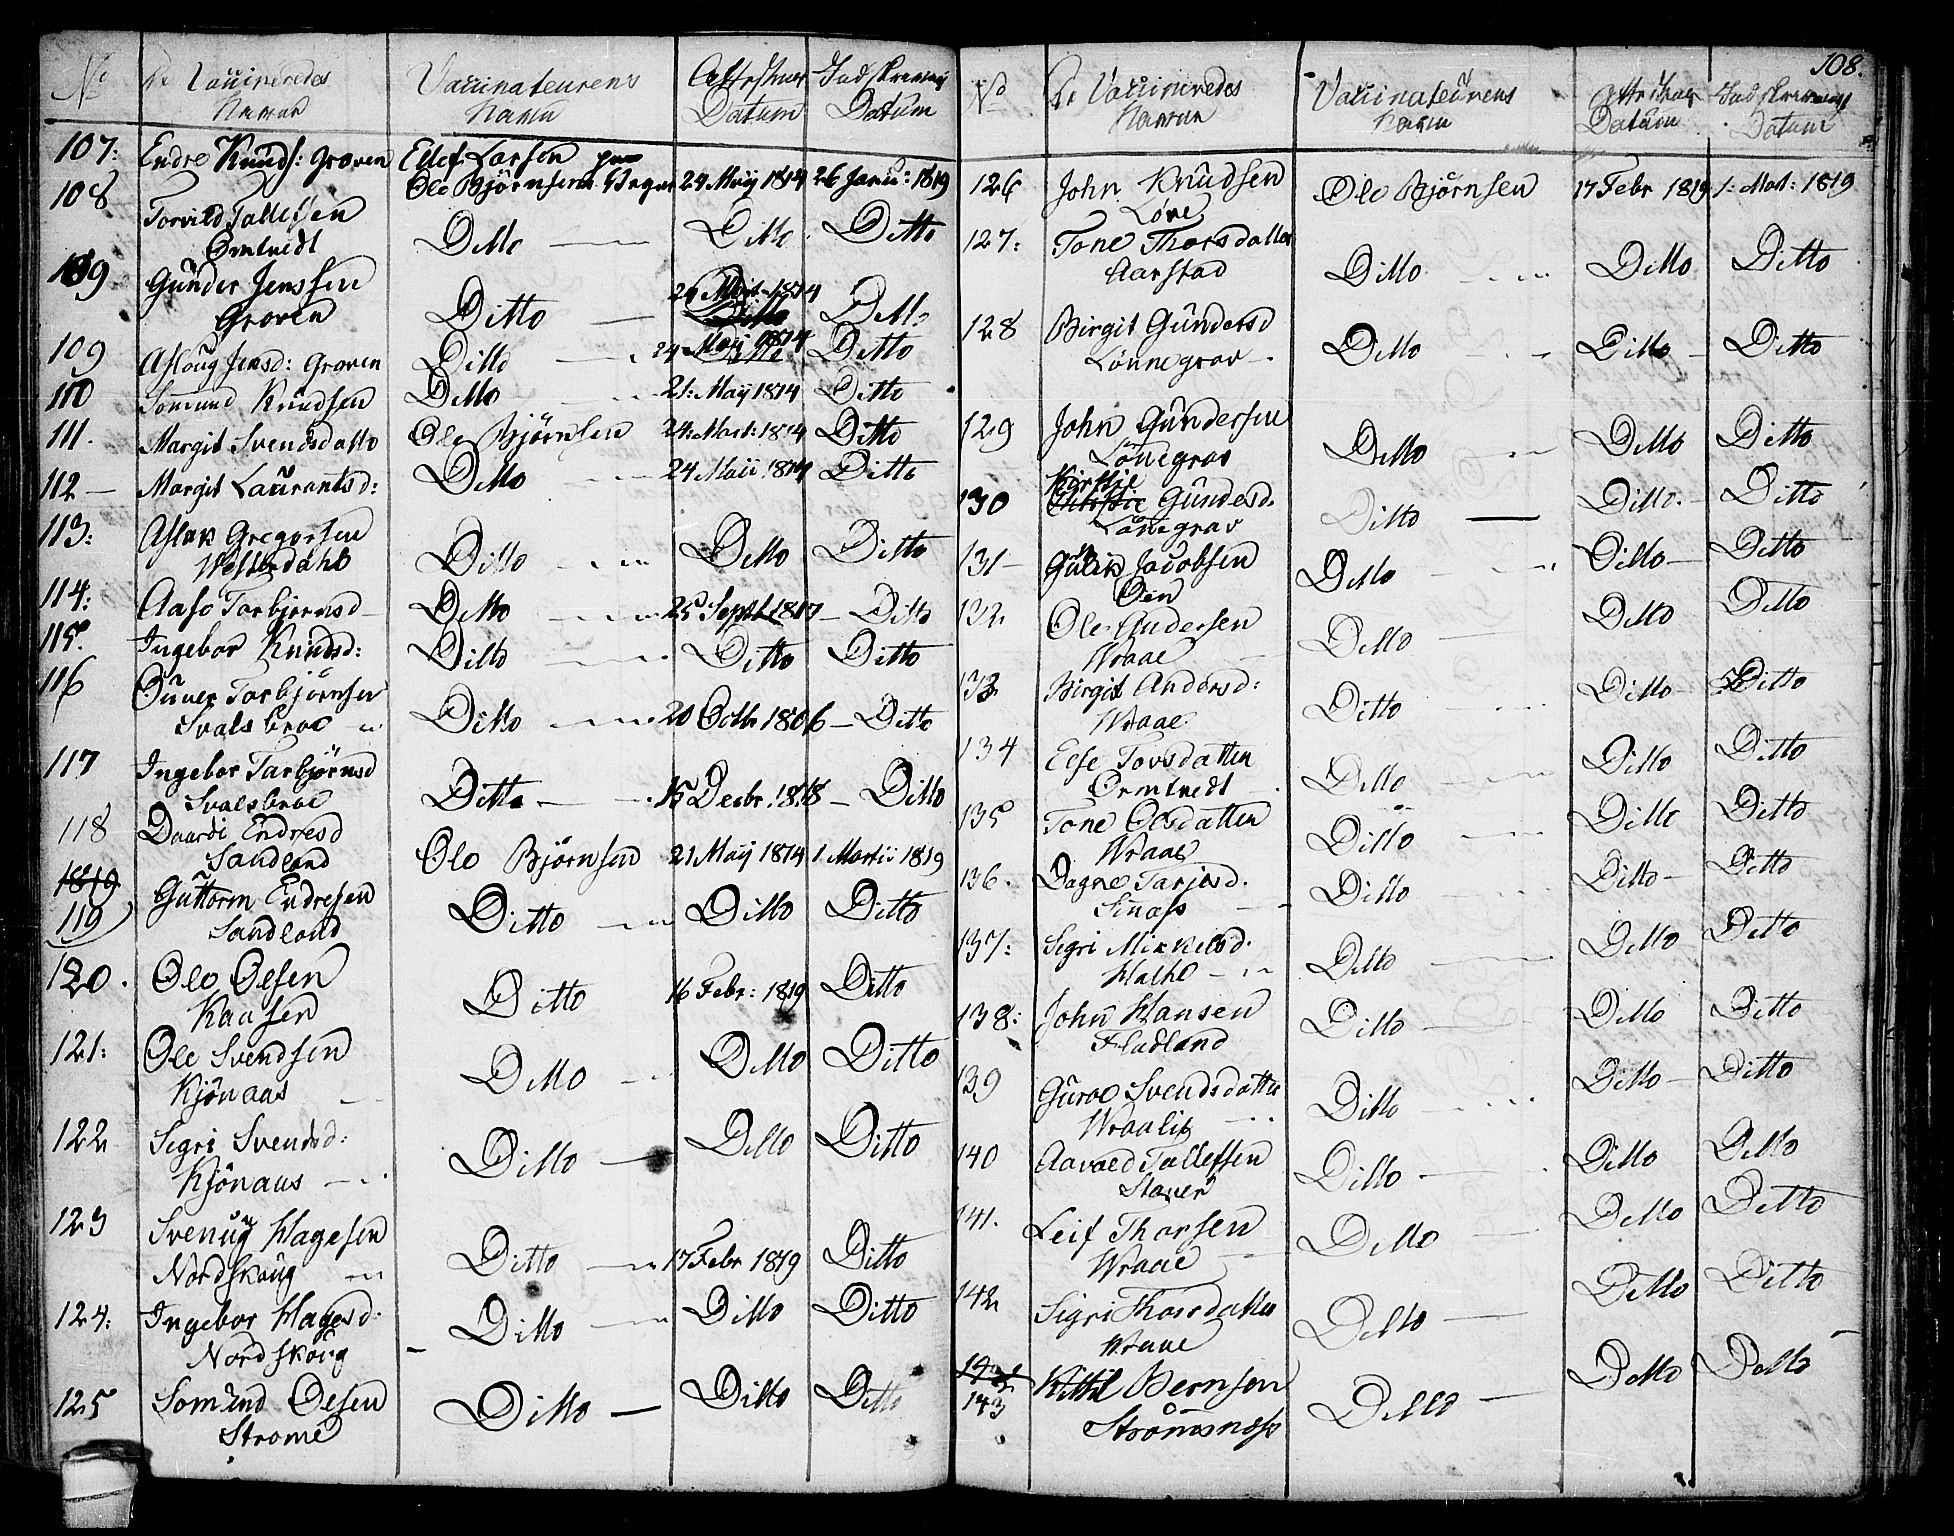 No De Vaccineredes Navne Vaccinateurens Navn Attesternes Datum Indskrevnings Datum
107: Endre Knuds: Groven Ellef Larsen
108 Torvild Tallefsen Ormtvedt Ole Björnsens 24 Maij 1814 26 Janu: 1819
Ditto Ditto Ditto
109 Gunder Jenssen Groven Ditto 24 1814 Ditto
109 Aslaug Jensd: Groven Ditto 24 Maij 1814 Ditto
110 Somund Knudsen Ditto 21: Maij 1814 Ditto
111. Margit Svendsdatto Ole Björnsen 24: Mart: 1814 Ditto
112 — Margit Laurantsd: Ditto 24 Maii 1814 Ditto
113: Aslak Gregorsen Westerdahl Ditto Ditto Ditto
114: Aase Torbjörnsd Ditto 25 Septb 1817 — Ditto
115. Ingebor Knudsd: Ditto Ditto Ditto
116 Guner Torbjörnsen Svalsbroe Ditto 20 Octbr 1806 — Ditto
117 Ingebor Tarbjörnsd Svalsbroe Ditto 15 Decbr. 1818 — Ditto
118 Daardi Endresd Sandland Ole Björnsen 21 Maij 1814 1 Martii 1819
1819
119 Guttorm Endresen Sandland Ditto Ditto Ditto
120. Ole Olsen Kaasen Ditto 16 Febr: 1819 Ditto
121: Ole Svendsen Kjönaas Ditto Ditto Ditto
122 Segri Svendsd: Kjönaas Ditto Ditto Ditto
123 Svenug Hagesen Nordskoug Ditto 17 Febr 1819 Ditto
124: Ingebor Hagesd: Nordskoug Ditto Ditto Ditto
125 Somund Olsen Strome Ditto Ditto Ditto
108.
No De Vaccineredes Navne Vaccinateurens Navn Attesternes Datum Indskrevnings Datum
126 John Knudsen Löve Ole Björnsen 17 Febr 1819 1: Mart: 1819
127: Tone Thorsdatter Aarstad Ditto Ditto Ditto
128 Birgit Gundersd Lönnegrav Ditto Ditto Ditto
129 John Gundersen Lönegrav Ditto Ditto Ditto
130 Kirstje Gundesd. Lönegrav Ditto Ditto Ditto
131 — Gulik Jacobsen Öen Ditto Ditto Ditto
132 Ole Andersen Wraae Ditto Ditto Ditto
133 Birgit Andersd: Wraae Ditto Ditto Ditto
134 Else Tovsdatter Ormtvedt Ditto Ditto Ditto
135 Tone Olsdatter Wraae Ditto Ditto Ditto
136. Dagne Tarjesd. Sinnæss Ditto Ditto Ditto
137: Segri Mikkelsd. Hathe Ditto Ditto Ditto
138: John Hansen Fladland Ditto Ditto Ditto
139 Guroe Svendsdatter Wraalie Ditto Ditto Ditto
140 Aavold Tallefsen Staver Ditto Ditto Ditto
141. Leif Thorsen Wraae Ditto Ditto Ditto
142 Sigri Thorsdatter Wraae Ditto Ditto Ditto
143 Kittil Bernsen Strömsness Ditto Ditto Ditto